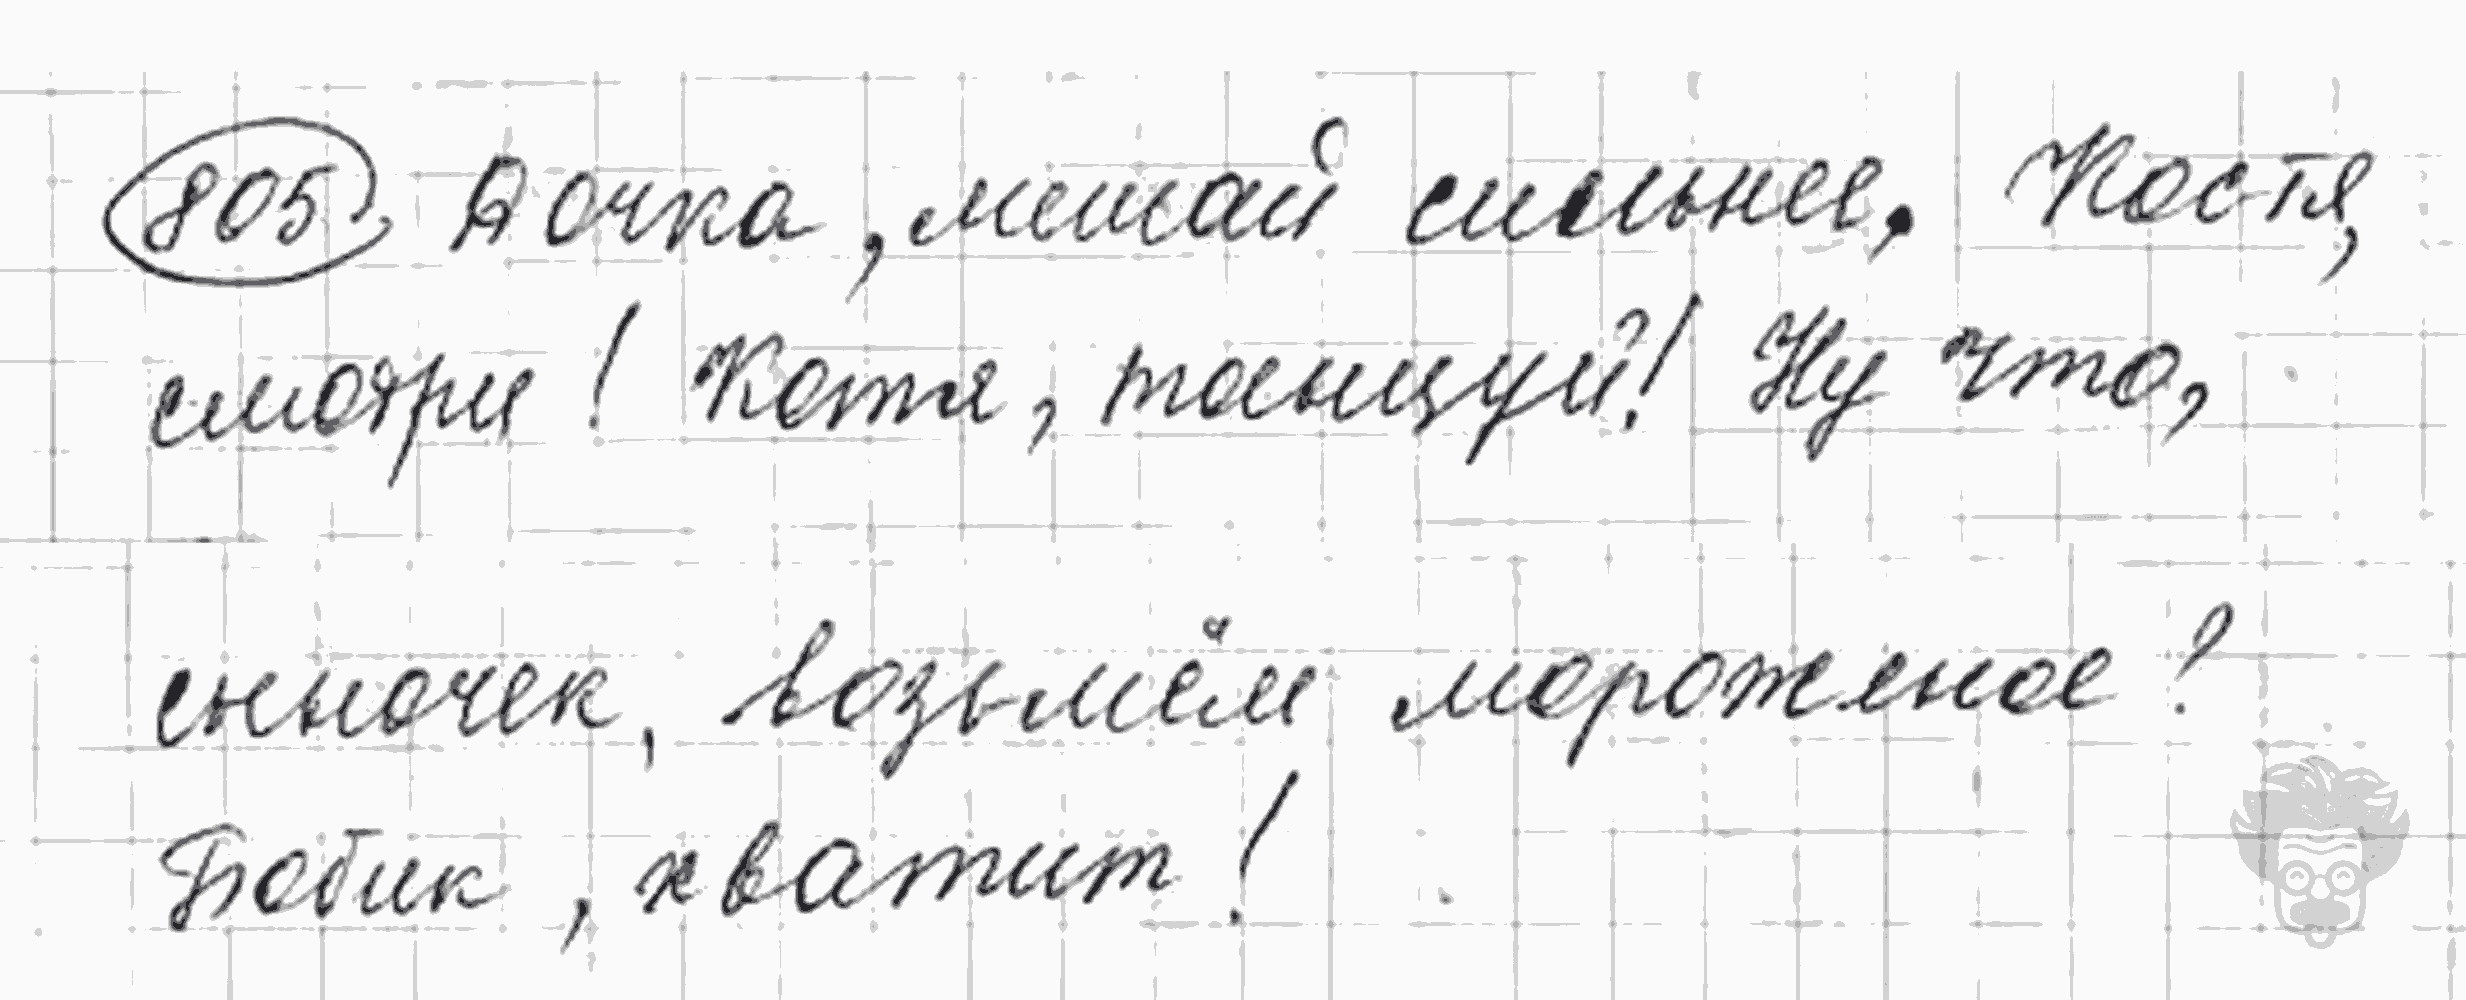 805. Дочка, мешай сильнее. Костя,
смотри! Катя, танцуй! Ну что,
сыночек, возьмём мороженое?
Бобик, хватит!